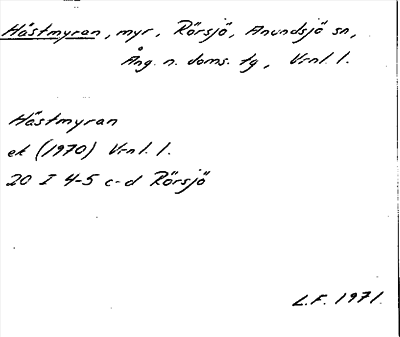 Hästmyran, myr, Rörsjö, Anundsjö sn,
Ång. n. doms. tg, Vrnl. l.
Hästmyran
ek (1970) Vrnl. l.
20 I 4-5 c-d Rörsjö
L.F. 1971.